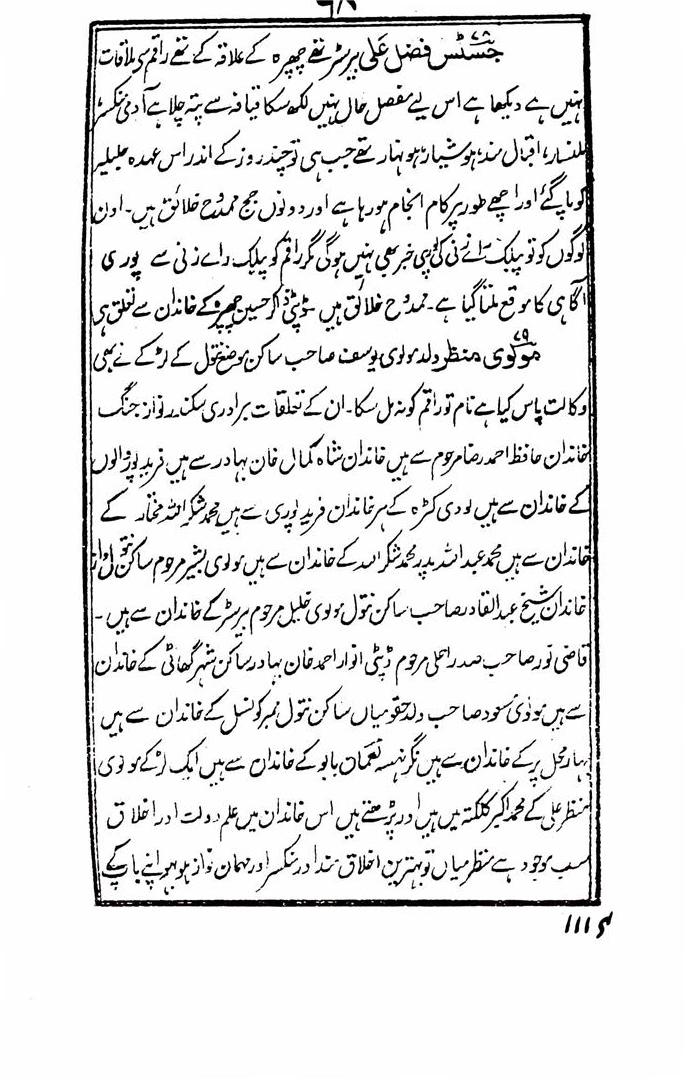 ۷۸ جسٹس فضل علی بیرسٹر تھے چھپرہ کے علاقہ کے تھے راقم سی ملاقات
نہیں ہے دیکھا ہے اس لیے مفصل حال نہیں لکھ سکا قیافہ سے پتہ چلا ہے آدمی منکسر
ملنسار، اقبال مند، ہوشیار، ہونہار تھے جب ہی تو چند روز کے اندر اس عہدہ جلیلہ
کو پا گئے اور اچھے طور پر کام انجام ہو رہا ہے اور دونوں جج ممدوح خلائق ہیں۔ اون
لوگوں کو تو پبلک رائے زنی کی کوئی خبر بھی نہیں ہوگی مگر راقم کو پبلک راے زنی سے پوری
آگاہی کا موقع ملتا گیا ہے۔ ممدوح خلائق ہیں۔ ڈپٹی ذاکر حسین چھپرہ کے خاندان سے تعلق ہی
۷۹ مولوی منظر ولد مولوی یوسف صاحب ساکن موضع نتول کے لڑکے نے بھی
وکالت پاس کیا ہے نام تو راقم کو نہ مل سکا۔ ان کے تعلقات برادری سکندر نواز جنگ
خاندان حافظ احمد رضا مرحوم سے ہیں خاندان شاہ کمال خان بہادر سے ہیں فرید پور والوں
کے خاندان سے ہیں لودی کٹرہ کے ہر خاندان فرید پوری سے ہیں محمد شکر اللہ مختار کے
خاندان سے ہیں محمد عبداللہ پدر محمد شکر اللہ کے خاندان سے ہیں مولوی بشیر مرحوم ساکن نتول
خاندان شیخ عبدالقادر صاحب ساکن نتول مولوی خلیل مرحوم بیرسٹر کے خاندان سے ہیں۔
قاضی نور صاحب صدر اعلی مرحوم ڈپٹی انوار احمد خان بہادر ساکن شہر گھاٹی کے خاندان
سے ہیں مولوی سعود صاحب ولد حقو میاں ساکن نتول ممبر کونسل کے خاندان سے ہیں
بہار محل پر کے خاندان سے ہیں نگرنہسہ نعمان بابو کے خاندان سے ہیں ایک لڑکے مولوی
منظر علی کے محمد اکبر کلکتہ میں ہیں اور پڑھتے ہیں اس خاندان میں علم دولت اور اخلاق
سب موجود ہے منظر میاں تو بہترین اخلاق مند اور منکسر اور مہمان نواز ہو بہو اپنے باپ کے